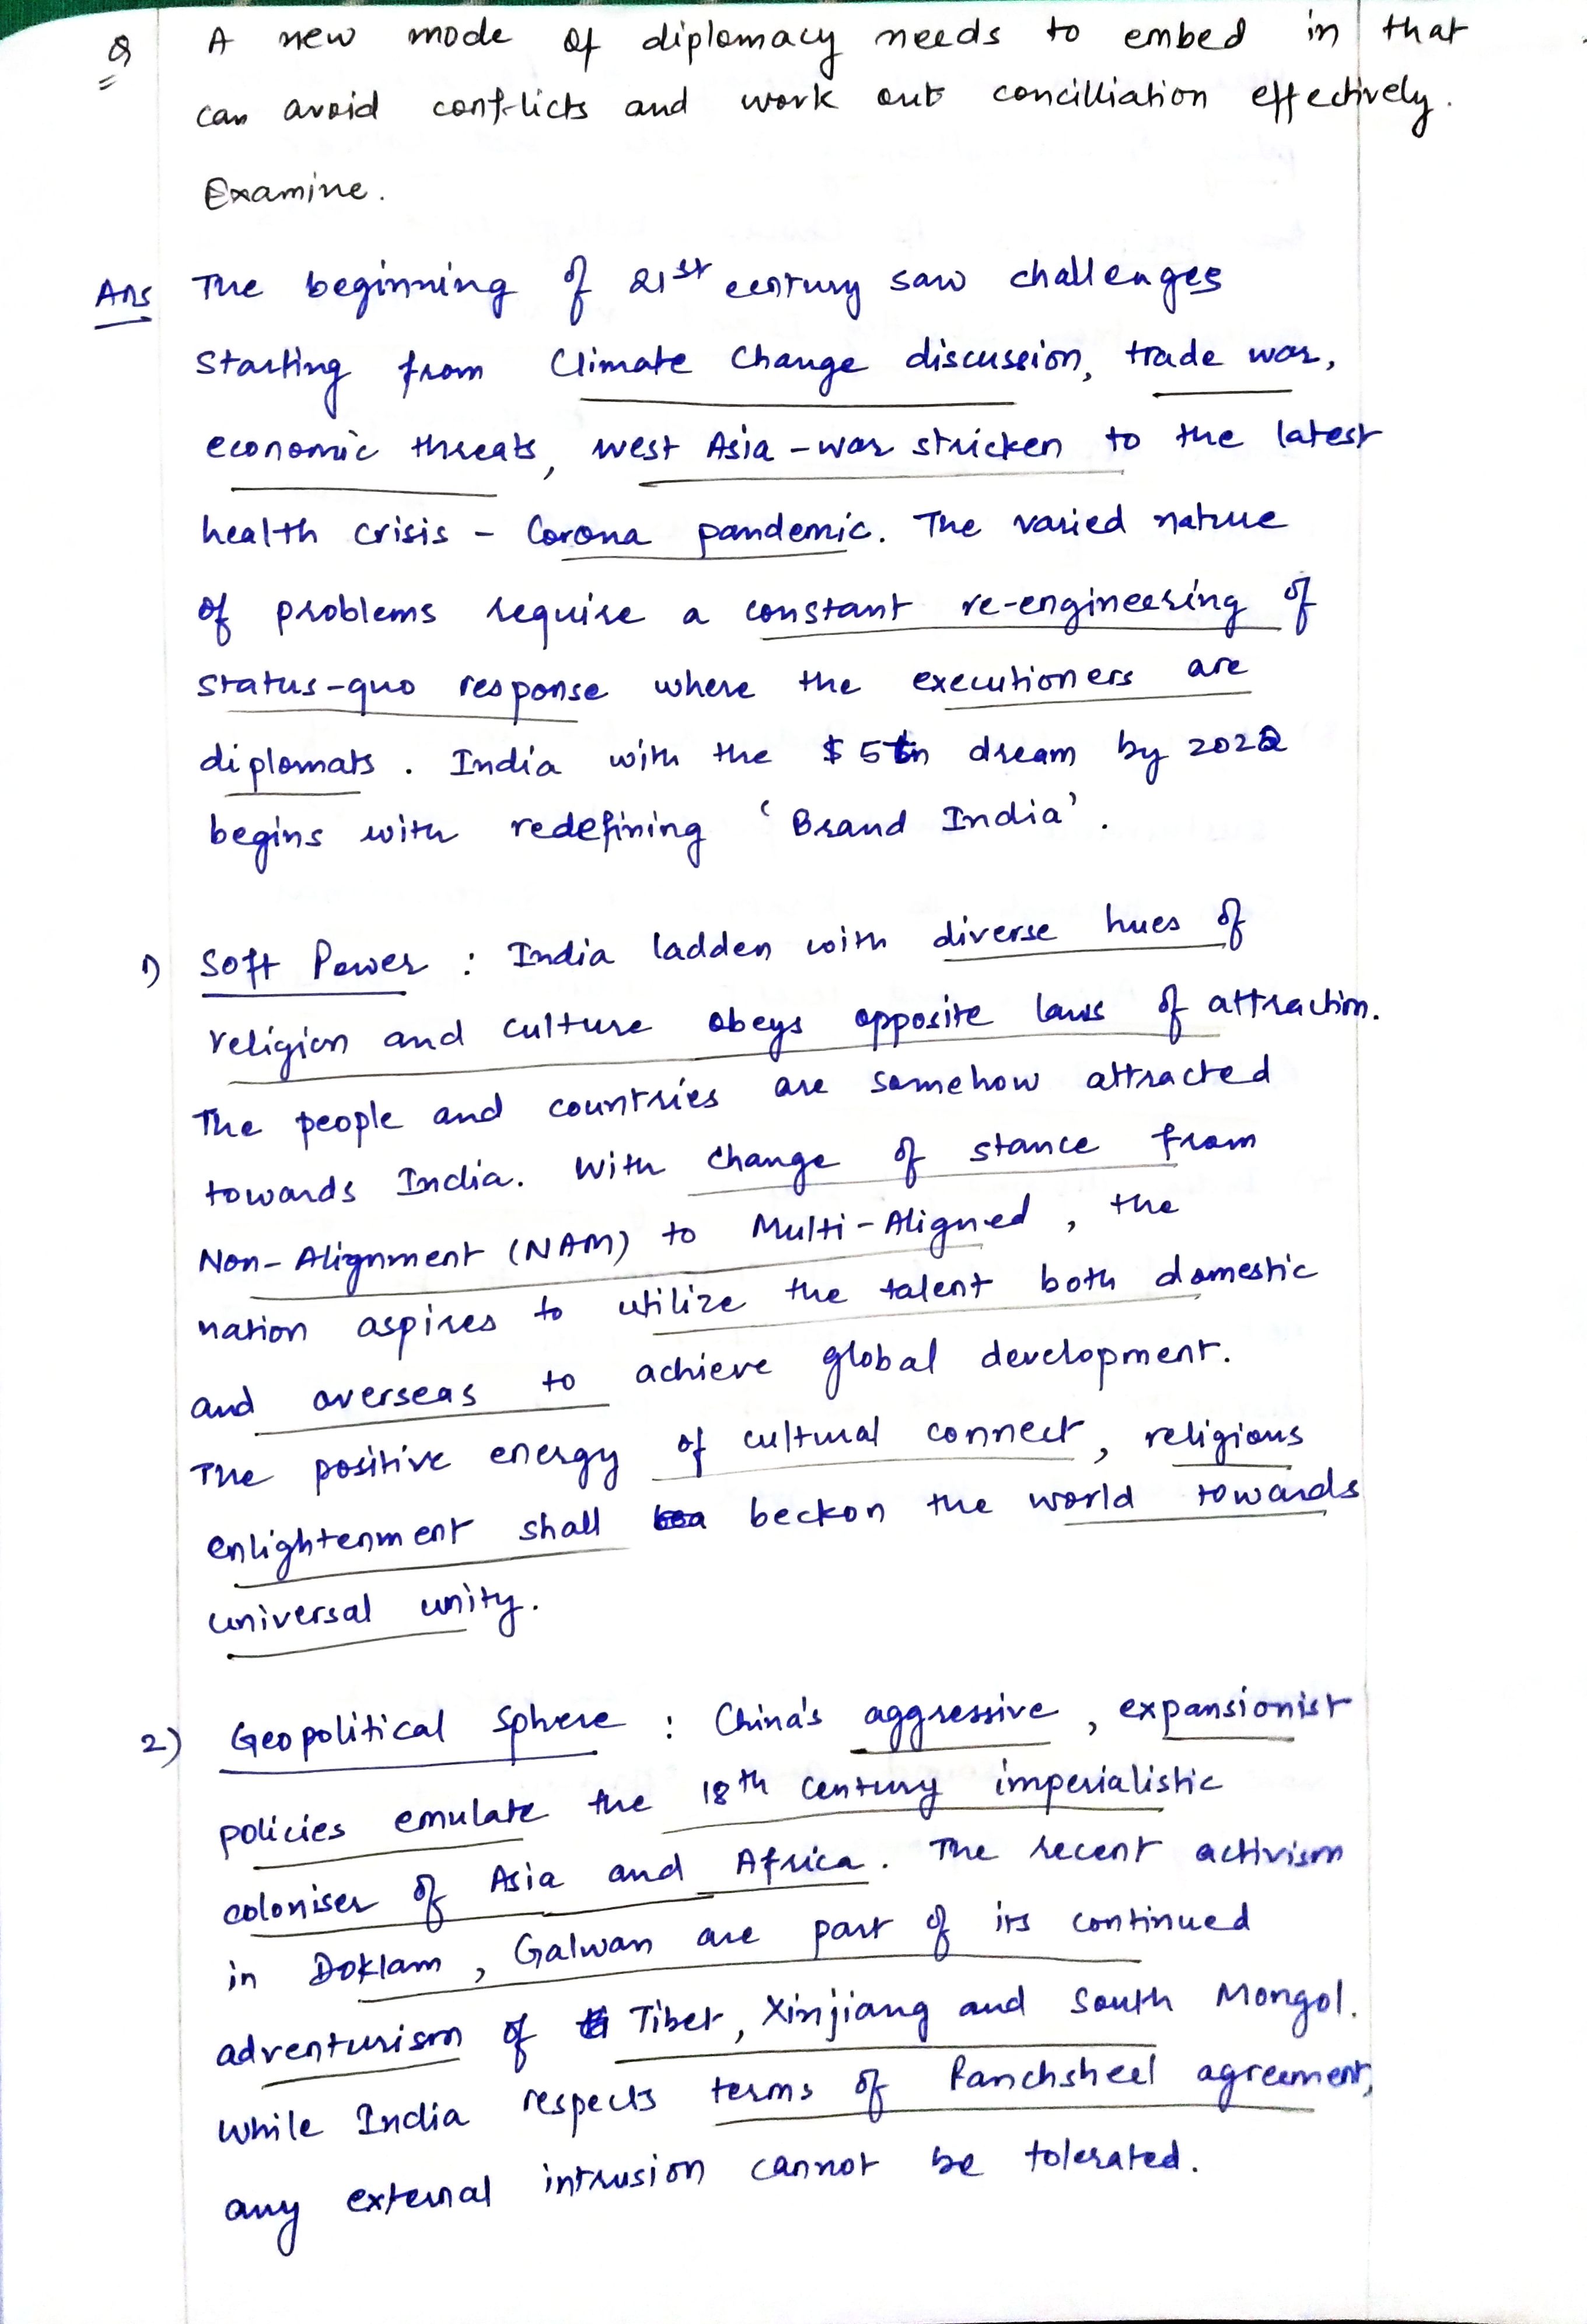 Q A new mode of diplomacy needs to embed in that
can avoid conflicts and work out concilliation effectively.
Examine.
Ans The beginning of 21st century saw challenges
starting from Climate Change discussion, trade war,
economic threats, west Asia - war stricken to the latest
health crisis - Corona pandemic. The varied nature
of problems require a constant re-engineering of
status-quo response where the executioners are
diplomats. India with the $ 5tn dream by 2022
begins with redefining 'Brand India'.
1) Soft Power : India ladden with diverse hues of
religion and culture obeys opposite laws of attraction.
The people and countries are somehow attracted
towards India. With change of stance from
Non-Alignment (NAM) to Multi-Aligned, the
nation aspires to utilize the talent both domestic
and overseas to achieve global development.
The positive energy of cultural connect, religious
enlightenment shall beckon the world towards
universal unity.
2) Geopolitical Sphere : China's aggressive, expansionist
policies emulate the 18th century imperialistic
coloniser of Asia and Africa. The recent activism
in Doklam, Galwan are part of its continued
adventurism of Tibet, Xinjiang and South Mongol.
While India respects terms of Panchsheel agreement,
any external intrusion cannot be tolerated.